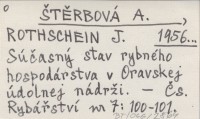 ŠTĚRBOVÁ A.,
ROTHSCHEIN J. 1956...
Súčasný stav rybného
hospodárstva v Oravskej
údolnej nádrži. — Čs.
Rybářství nr 7: 100-101.